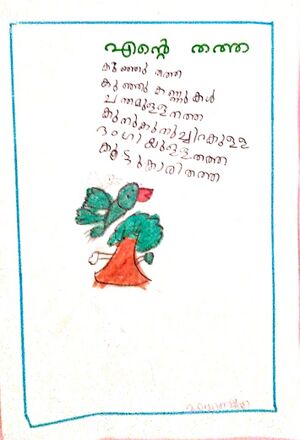 എന്റെ തത്ത
കുഞ്ഞു തത്ത
കുഞ്ഞു കണ്ണുകൾ
ചന്തമുള്ളതത്ത
കുനുകുനുച്ചിറകുള്ള
ഭംഗിയുള്ളതത്ത
കൂട്ടുകാരിതത്ത